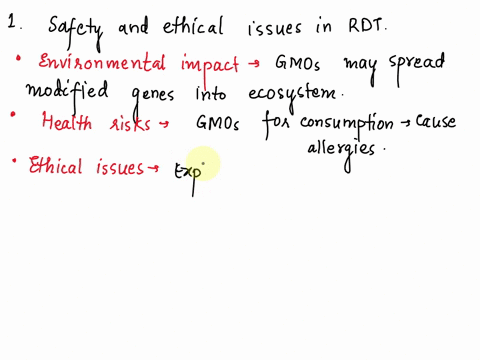 1. Safety and ethical issues in RDT.
• Environmental impact → GMOs may spread
modified genes into ecosystem.
• Health risks → GMOs for consumption → cause
allergies.
• Ethical issues → Exp